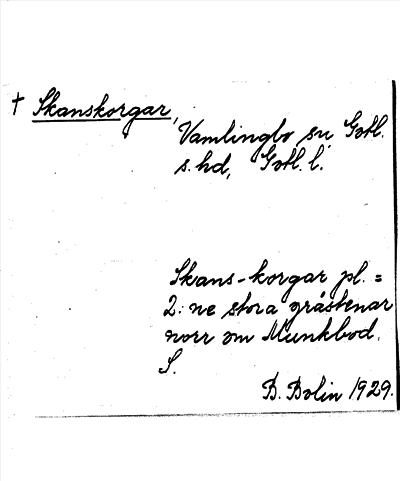 † Skanskorgar,
Vamlingbo sn, Gotl.
s. hd, Gotl. l.
Skans-korgar pl. =
2: ne stora gråstenar
norr om Munkbod.
S.
B. Bolin 1929.